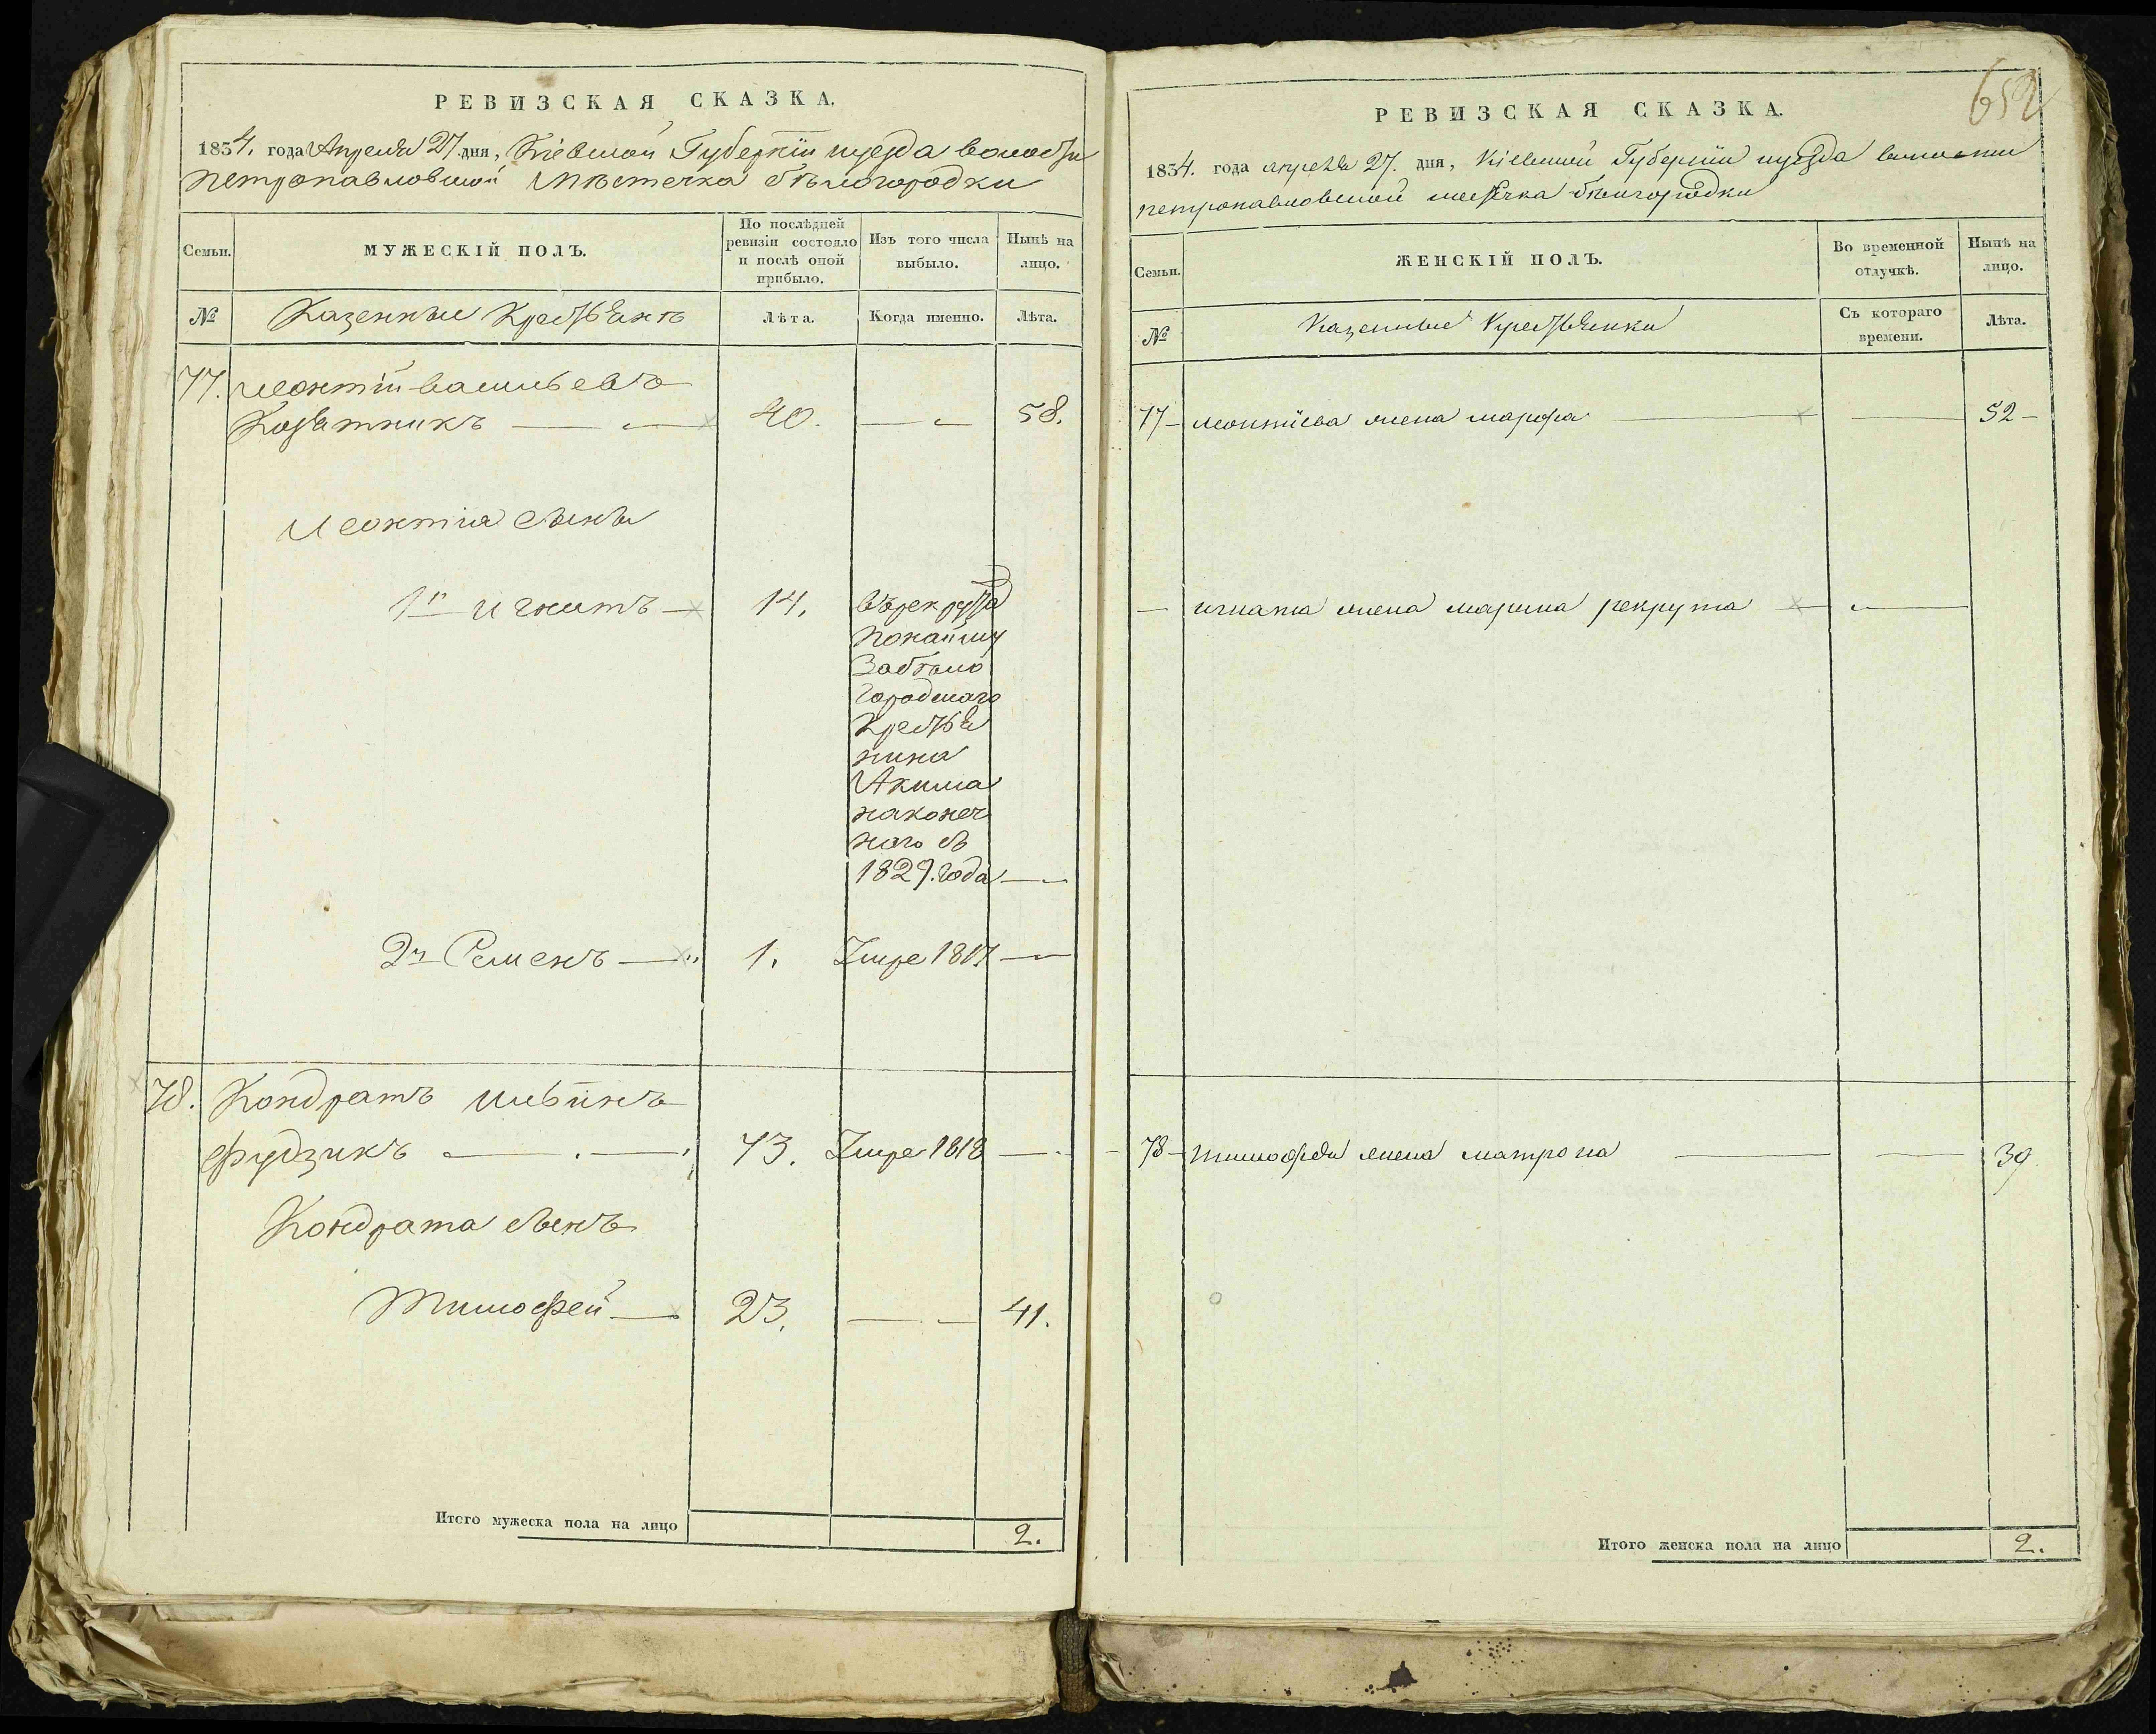 РЕВИЗСКАЯ СКАЗКА.
1834. года Апреля 27. дня, Кіевской Губерніи иуезда волости
петропавловской Мѣстечка бѣлогородки
Семьи.
МУЖЕСКІЙ ПОЛЪ.
По послѣдней ревизіи состояло и послѣ оной прибыло.
Изъ того числа выбыло.
Нынѣ на лицо.
№
Казенные Крестьянѣ
Лѣта.
Когда именно.
Лѣта.
77. Леонтій васильевъ
40. 58.
Леонтія сыны
1й игнатъ 14. въ рекрута
понайму
Забѣло
городскаго
Крестья
нина
Акима
наконеч
наго съ
1829. года
2й Семенъ 1. Умре 1817
78. Кондратъ ильинъ
Фудзикъ 73. Умре 1818
Кондрата сынъ
Тимофей 23. 41.
Итого мужеска пола на лицо 2.
652
РЕВИЗСКАЯ СКАЗКА.
1834. года апреля 27. дня, Кіевской Губерніи иуезда волости
петропавловской местечка бѣлогородки
Семьи.
ЖЕНСКІЙ ПОЛЪ.
Во временной отлучкѣ.
Нынѣ на лицо.
№
Казенные Крестьянки
Съ котораго времени.
Лѣта.
77 леонтіева жена марфа 52
игната жена марина рекрута
78 тимофея жена матрона 39
Итого женска пола на лицо 2.